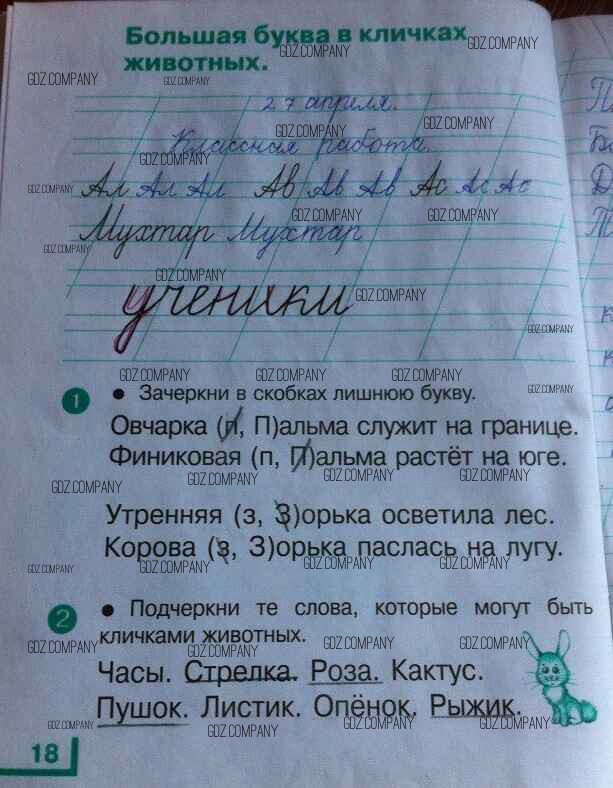 Большая буква в кличках
животных.
27 апреля.
Классная работа.
Ал Ал Ал Ав Ав Ав Ас Ас Ас
Мухтар Мухтар
ученики
1 • Зачеркни в скобках лишнюю букву.
Овчарка (п, П)альма служит на границе.
Финиковая (п, П)альма растёт на юге.
Утренняя (з, З)орька осветила лес.
Корова (з, З)орька паслась на лугу.
2 • Подчеркни те слова, которые могут быть
кличками животных.
Часы. Стрелка. Роза. Кактус.
Пушок. Листик. Опёнок. Рыжик.
18
GDZ.COMPANY